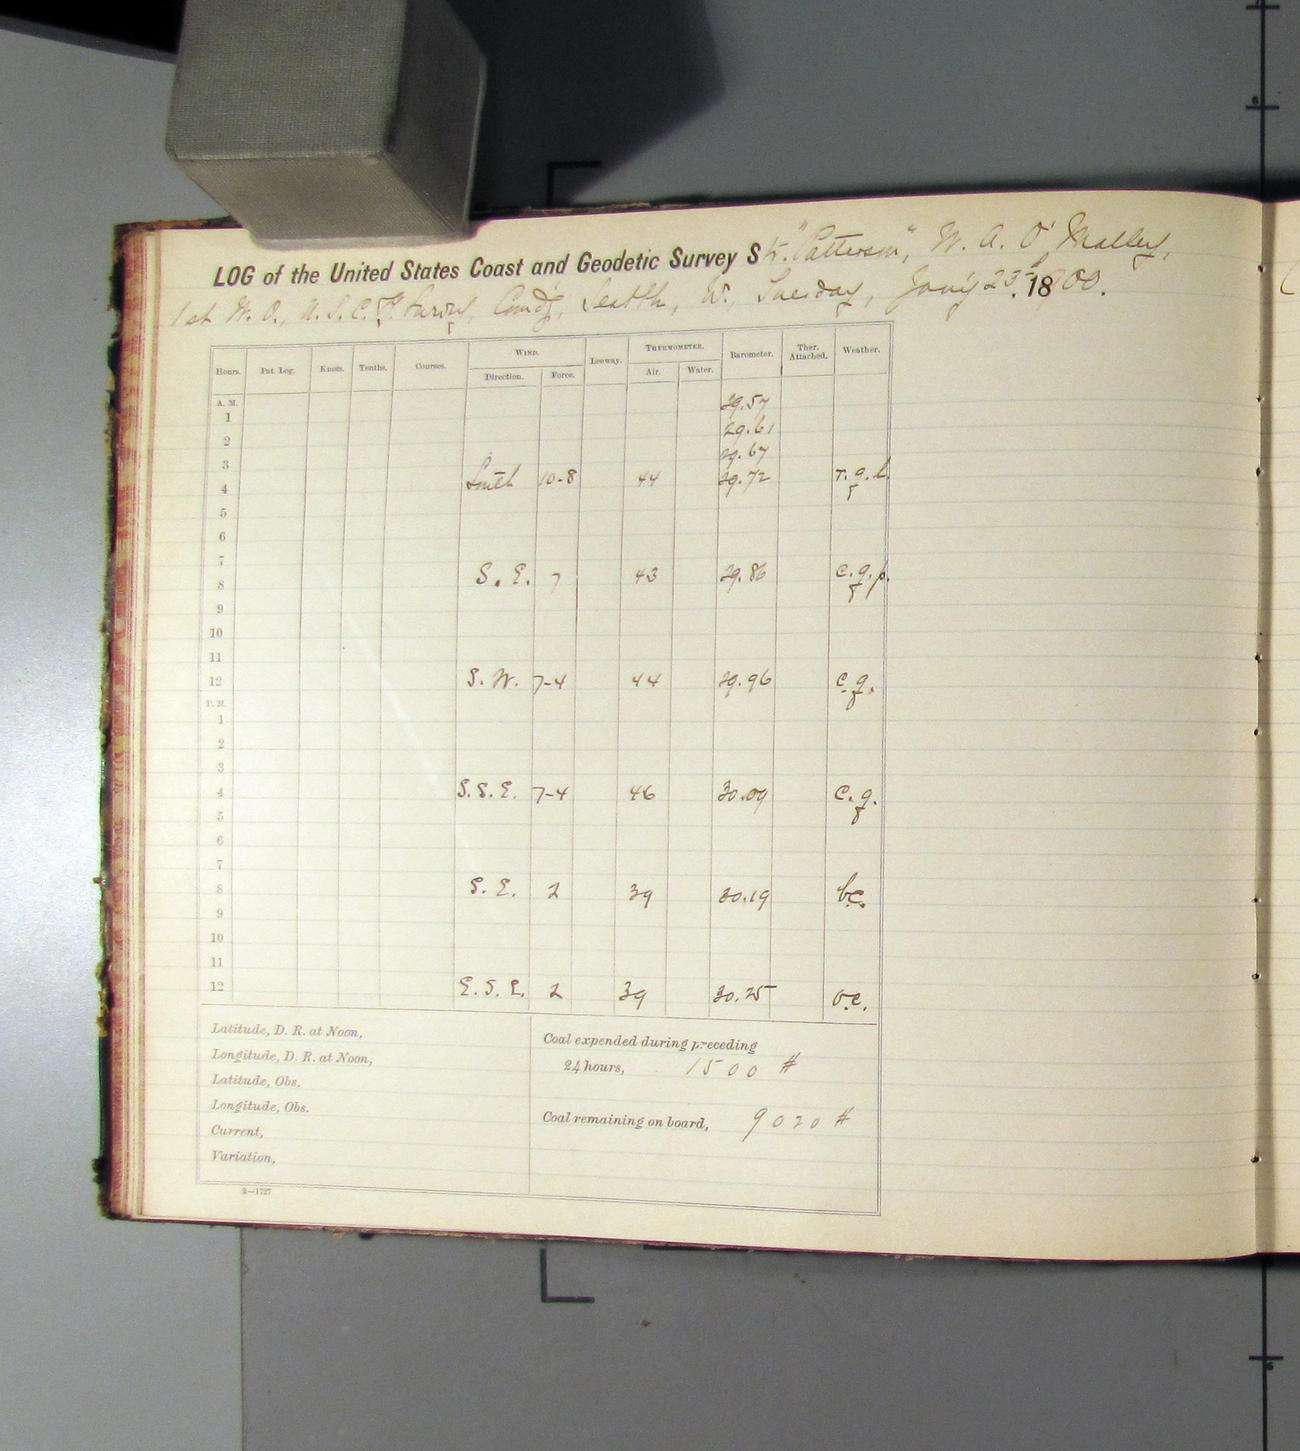 LOG of the United States Coast and Geodetic Survey Str. "Patterson", W. A. O'Malley,
1st W. O., U. S. C. & G. Survey, Comd'g, Seattle, W., Tuesday, Jan'y 23rd, 1900.
Hours. Pat. Log. Knots. Tenths. Courses. WIND. Leeway. THERMOMETER. Barometer. Ther. Attached. Weather.
Direction. Force. Air. Water.
A. M.
1 29.57
2 29.61
3 29.67
4 South 10-8 44 29.72 r.q.b.
5
6
7
8 S. E. 7 43 29.86 c.q.p.
9
10
11
12 S. W. 7-4 44 29.96 c.q.
P. M.
1
2
3
4 S. S. E. 7-4 46 30.09 c.q.
5
6
7
8 S. E. 2 39 30.19 b.c.
9
10
11
12 E. S. E. 2 39 30.25 o.c.
Latitude, D. R. at Noon,
Longitude, D. R. at Noon,
Latitude, Obs.
Longitude, Obs.
Current,
Variation,
Coal expended during preceding
24 hours, 1500 #
Coal remaining on board, 9020 #
2—1727